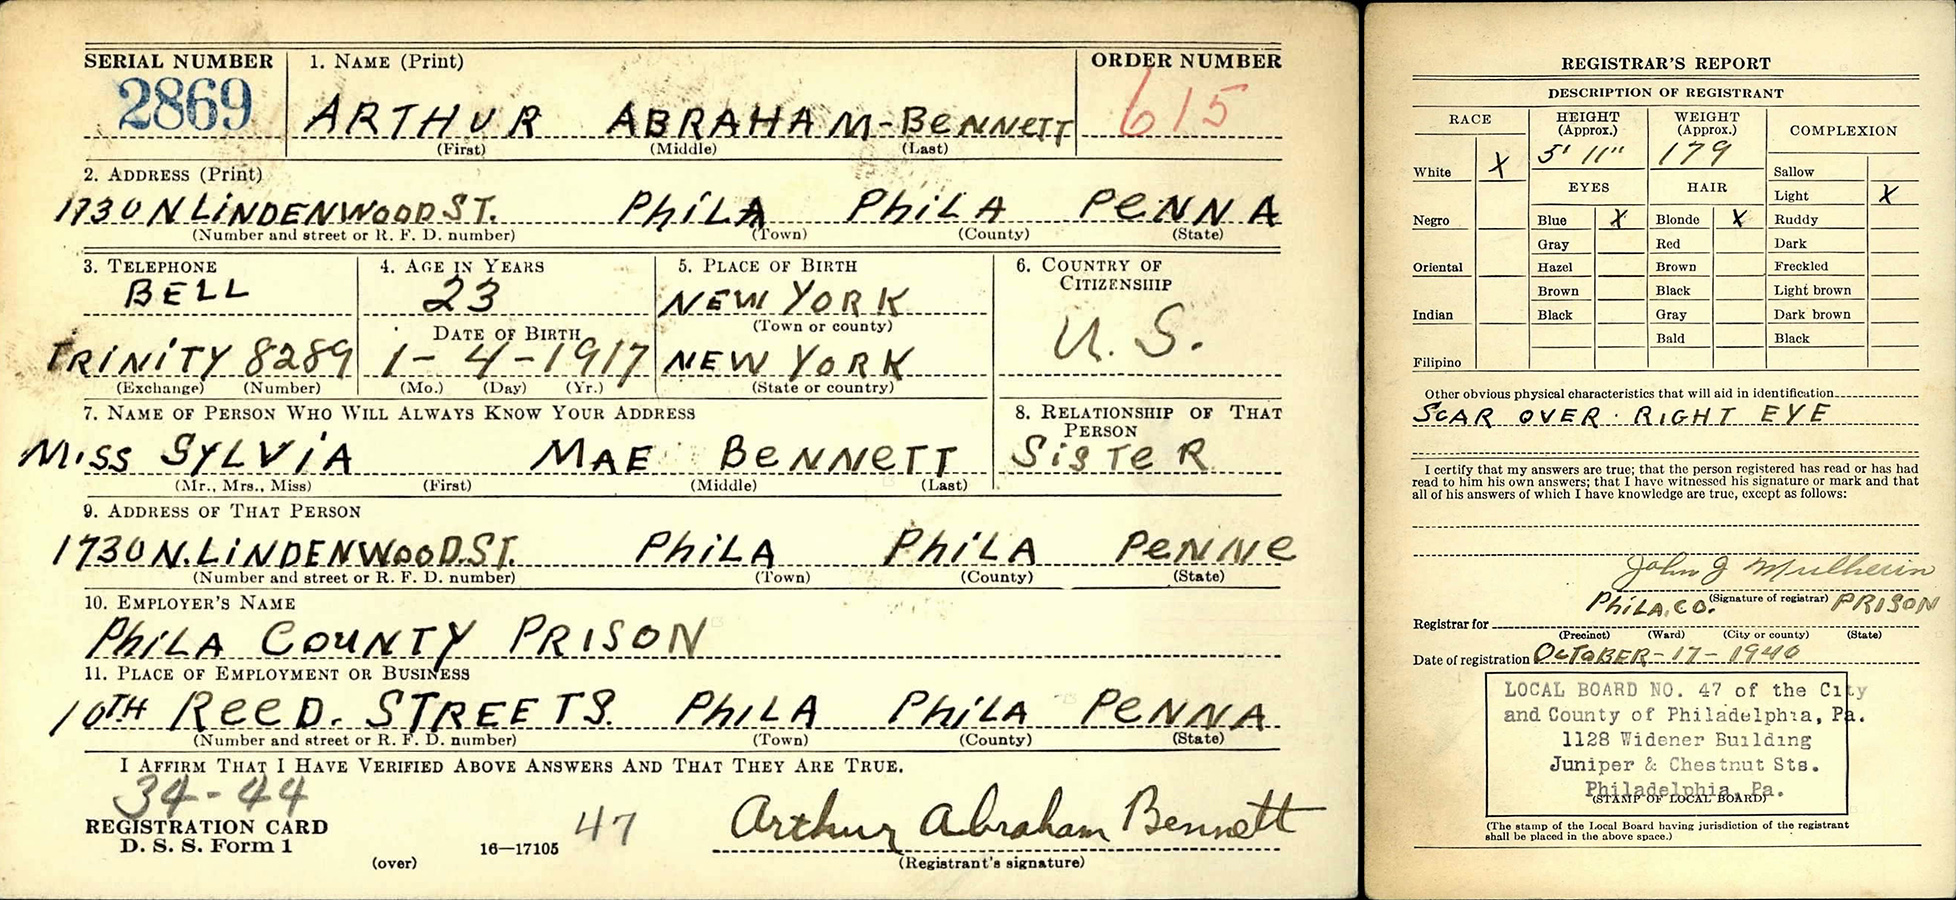 SERIAL NUMBER
2869
1. NAME (Print)
ARTHUR ABRAHAM-BENNETT
(First) (Middle) (Last)
ORDER NUMBER
615
2. ADDRESS (Print)
1730 N. LINDENWOOD ST. PHILA PHILA PENNA
(Number and street or R. F. D. number) (Town) (County) (State)
3. TELEPHONE
BELL
TRINITY 8289
(Exchange) (Number)
4. AGE IN YEARS
23
DATE OF BIRTH
1-4-1917
(Mo.) (Day) (Yr.)
5. PLACE OF BIRTH
NEW YORK
(Town or county)
NEW YORK
(State or country)
6. COUNTRY OF
CITIZENSHIP
U. S.
7. NAME OF PERSON WHO WILL ALWAYS KNOW YOUR ADDRESS
MISS SYLVIA MAE BENNETT
(Mr., Mrs., Miss) (First) (Middle) (Last)
8. RELATIONSHIP OF THAT
PERSON
SISTER
9. ADDRESS OF THAT PERSON
1730 N. LINDENWOOD. ST. PHILA PHILA PENNE
(Number and street or R. F. D. number) (Town) (County) (State)
10. EMPLOYER'S NAME
PHILA COUNTY PRISON
11. PLACE OF EMPLOYMENT OR BUSINESS
10TH REED. STREETS. PHILA PHILA PENNA
(Number and street or R. F. D. number) (Town) (County) (State)
I AFFIRM THAT I HAVE VERIFIED ABOVE ANSWERS AND THAT THEY ARE TRUE.
34-44
REGISTRATION CARD
D. S. S. Form 1
(over)
16—17105
47
Arthur Abraham Bennett
(Registrant's signature)
REGISTRAR'S REPORT
DESCRIPTION OF REGISTRANT
RACE
White X
Negro
Oriental
Indian
Filipino
HEIGHT
(Approx.)
5' 11"
WEIGHT
(Approx.)
179
EYES
Blue X
Gray
Hazel
Brown
Black
HAIR
Blonde X
Red
Brown
Black
Gray
Bald
COMPLEXION
Sallow
Light X
Ruddy
Dark
Freckled
Light brown
Dark brown
Black
Other obvious physical characteristics that will aid in identification
SCAR OVER RIGHT EYE
I certify that my answers are true; that the person registered has read or has had
read to him his own answers; that I have witnessed his signature or mark and that
all of his answers of which I have knowledge are true, except as follows:
John J Mulherin
(Signature of registrar)
Registrar for PHILA. CO. PRISON
(Precinct) (Ward) (City or county) (State)
Date of registration OCTOBER-17-1940
LOCAL BOARD NO. 47 of the City
and County of Philadelphia, Pa.
1128 Widener Building
Juniper & Chestnut Sts.
Philadelphia, Pa.
(STAMP OF LOCAL BOARD)
(The stamp of the Local Board having jurisdiction of the registrant
shall be placed in the above space.)